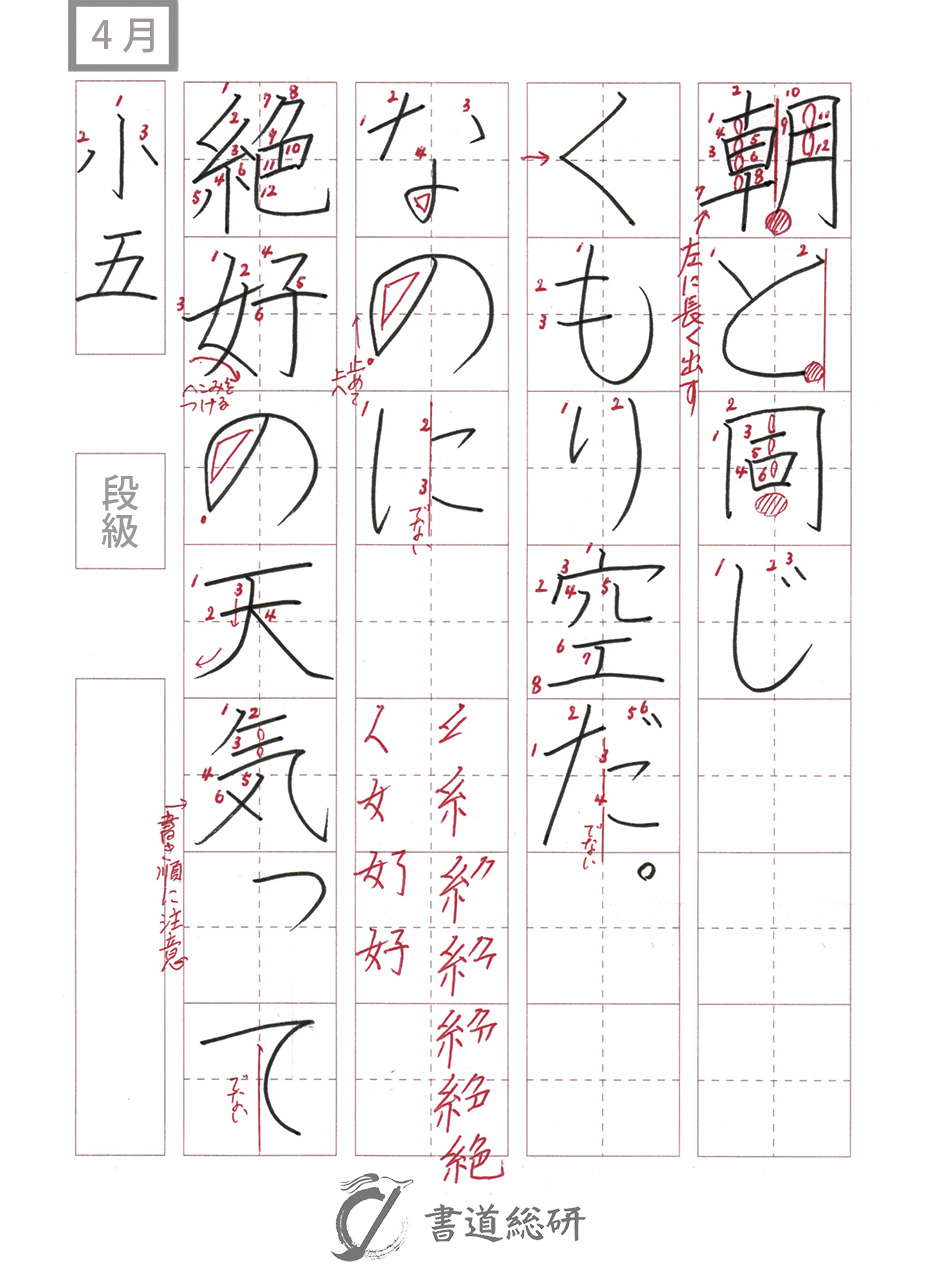 4月
朝と同じ
左に長く出す
くもり空だ。
でない
なのに
でない
止めて
上へ
糸
絶
く
女
好
絶好の天気って
へこみを
つける
書き順に注意
でない
小五
段級
書道総研